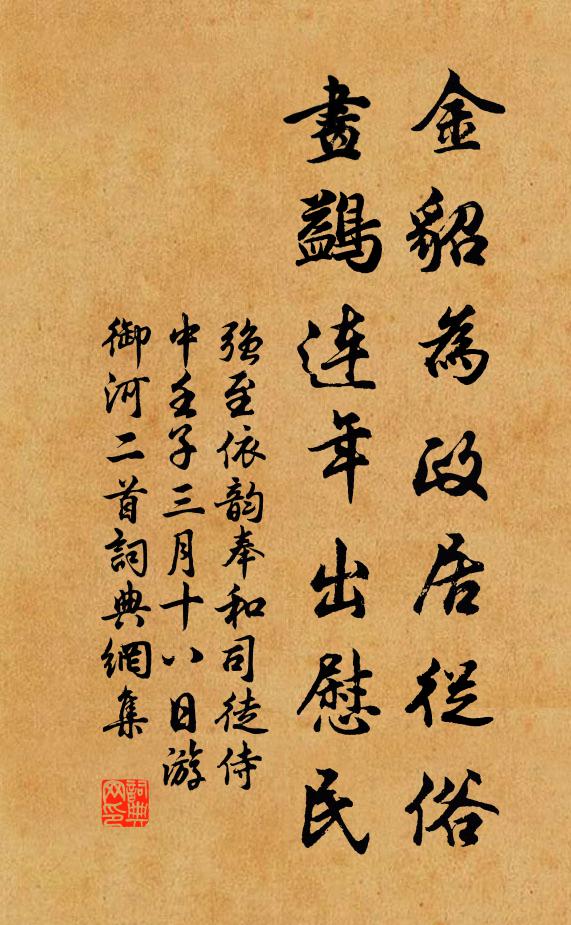 金貂為政居從俗
畫鷁連年出慰民
強至依韵奉和司徒侍
中壬子三月十八日游
御河二首詞典網集
詞典網印